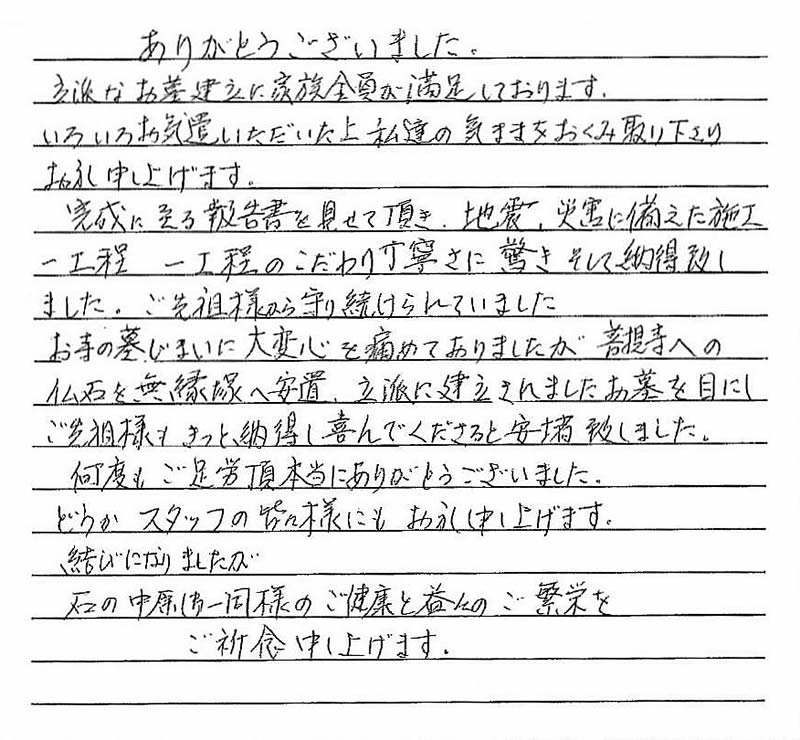 ありがとうございました。
立派なお墓建立に家族全員が満足しております。
いろいろお気遣いいただいた上私達の気ままをおくみ取り下さり
お礼申し上げます。
完成に至る報告書を見せて頂き、地震、災害に備えた施工
一工程 一工程のこだわり丁寧さに驚きそして納得致し
ました。ご先祖様から守り続けられていました
お寺の墓じまいに大変心を痛めておりましたが菩提寺への
仏石を無縁塚へ安置、立派に建立されましたお墓を目にし
ご先祖様もきっと納得し喜んでくださると安堵致しました。
何度もご足労頂本当にありがとうございました。
どうかスタッフの皆々様にもお礼申し上げます。
結びになりましたが
石の中原様一同様のご健康と益々のご繁栄を
ご祈念申し上げます。